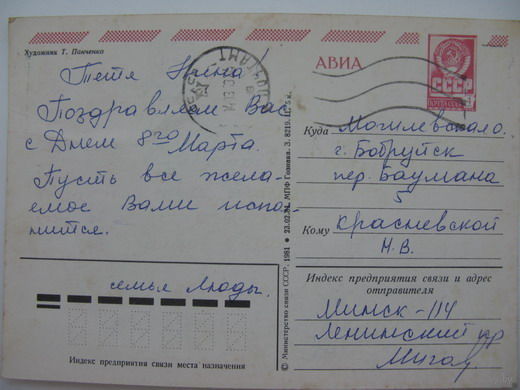 Художник Т. Панченко
АВИА
СССР
Тетя Нина!
Поздравляем Вас
с Днем 8го
Марта.
Пусть все жела-
емое Вами испо-
лнится.
семья Люды.
Индекс предприятия связи места назначения
© Министерство связи СССР. 1981 • 23.02.81. МПФ Гознака. З. 8219. Ц. 5 к.
Куда Могилевская о.
г. Бобруйск
пер. Баумана
5
Кому Красневской
Н.В.
Индекс предприятия связи и адрес
отправителя
Минск-114
Ленинский пр